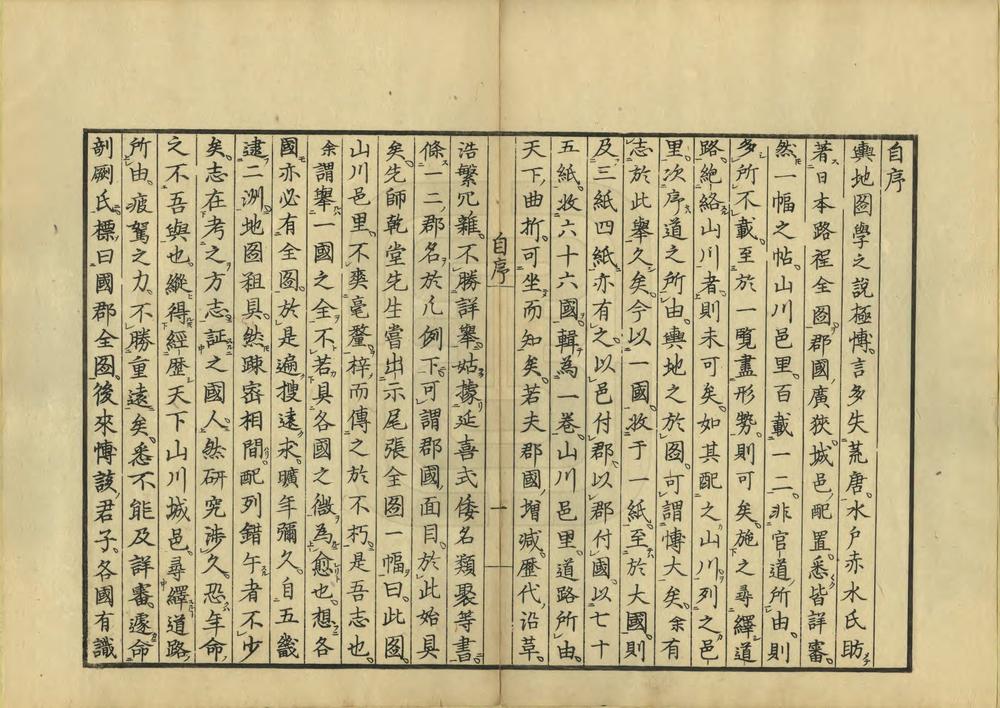 自序
輿地圖學之說極博言多失荒唐水戶赤水氏昉
著日本路程全圖郡國廣狹城邑配置悉皆詳審
然一幅之帖山川邑里百載一二非官道所由則
多所不載至於一覽盡形勢則可矣施之尋繹道
路絶絡山川者則未可矣如其配之山川列之邑
里次序道之所由輿地之於圖可謂博大矣余有
志於此舉久矣今以一國收于一紙至於大國則
及三紙四紙亦有之以邑付郡以郡付國以七十
五紙收六十六國輯為一卷山川邑里道路所由
天下曲折可坐而知矣若夫郡國増減歷代沿革
自序
一
浩繁冗雜不勝詳舉姑據延喜式倭名類聚等書
條一二郡名於凡例下可謂郡國面目於此始具
矣先師乾堂先生嘗出示尾張全圖一幅曰此圖
山川邑里不爽毫釐梓而傳之於不朽是吾志也
余謂舉一國之全不若具各國之微為愈也想各
國亦必有全圖於是遍搜遠求曠年彌久自五畿
逮二洲地圖粗具然踈密相間配列錯午者不少
矣志在考之方志証之國人然研究涉久恐年命
之不吾與也縱得經歷天下山川城邑尋繹道路
所由疲駑之力不勝重遠矣悉不能及詳審遽命
剞劂氏標曰國郡全圖後來博該君子各國有識